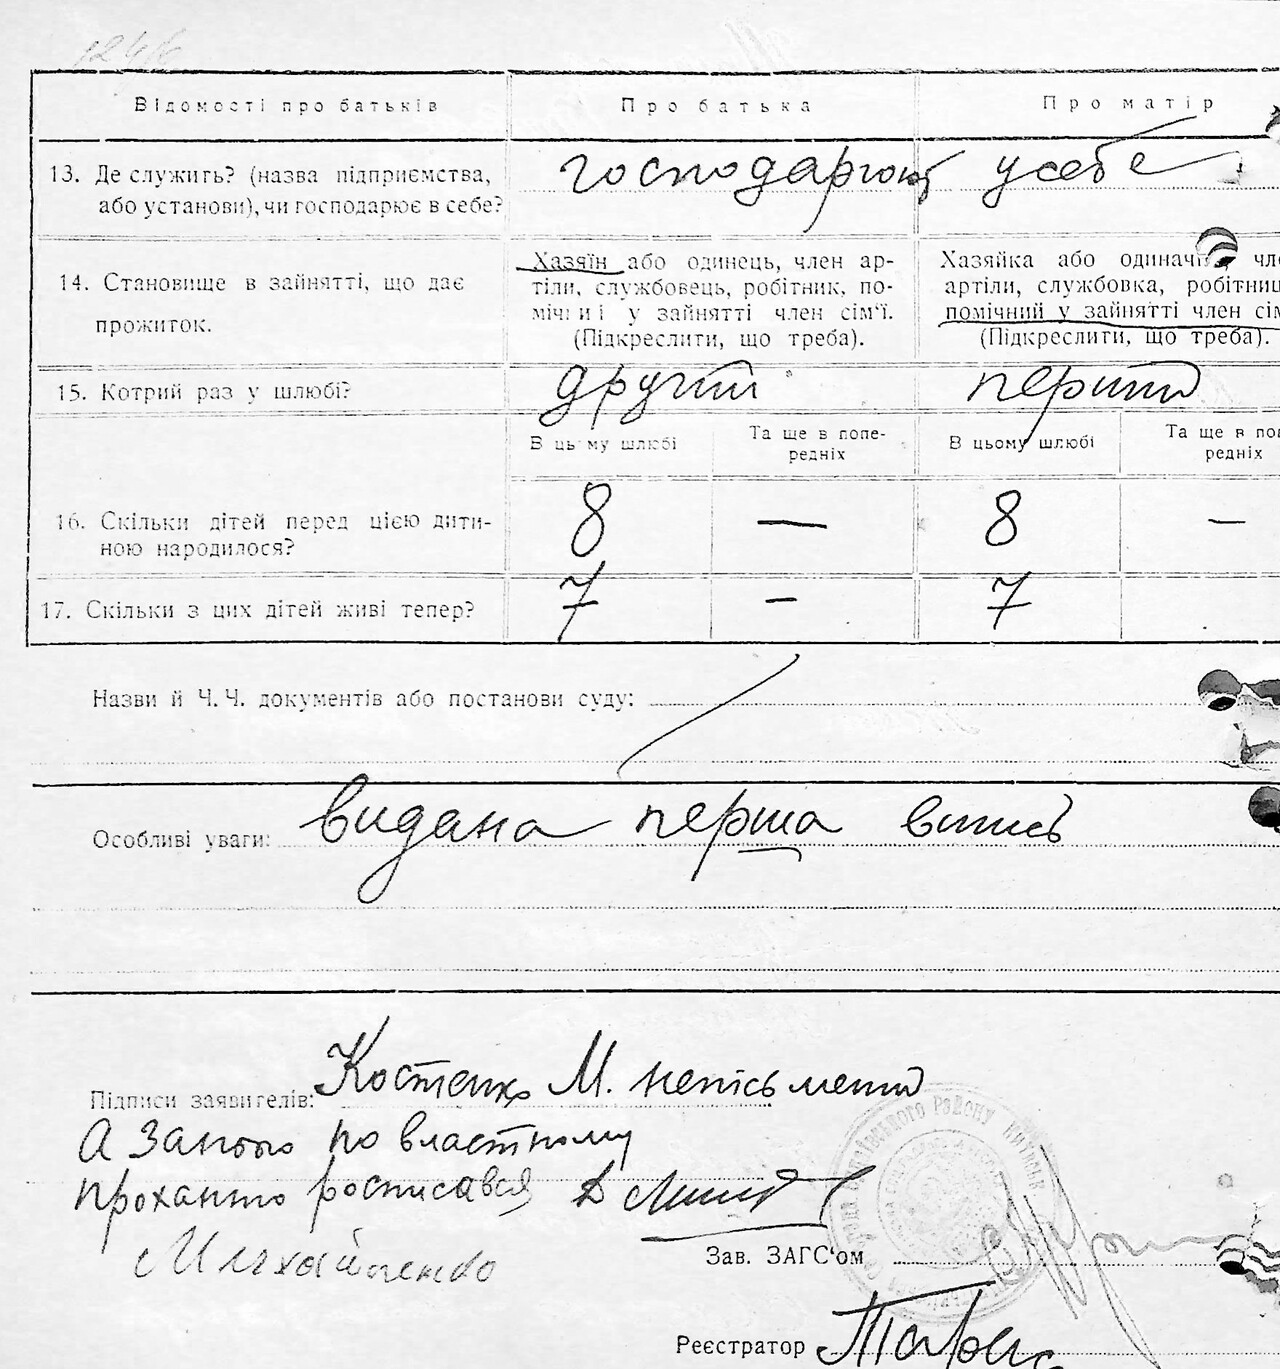 1246
Відомості про батьків Про батька Про матір
13. Де служить? (назва підприємства, або установи), чи господарює в себе? господарюют у себе
14. Становище в зайнятті, що дає прожиток.
Хазяїн або одинець, член ар-
тіли, службовець, робітник, по-
мічний у зайнятті член сім'ї.
(Підкреслити, що треба).
Хазяйка або одиначка, чле
артіли, службовка, робітниц
помічний у зайнятті член сім
(Підкреслити, що треба).
15. Котрий раз у шлюбі? другий перший
В цьому шлюбі Та ще в попе-редніх В цьому шлюбі Та ще в поп редніх
16. Скільки дітей перед цією дити-
ною народилося? 8 — 8 —
17. Скільки з цих дітей живі тепер? 7 – 7
Назви й Ч. Ч. документів або постанови суду:
Особливі уваги: видана перша випись
Підписи заявителів: Костенко М. непісьмений
А за нього по властному
проханню росписався
Михайленко
Зав. ЗАГС'ом
Реєстратор